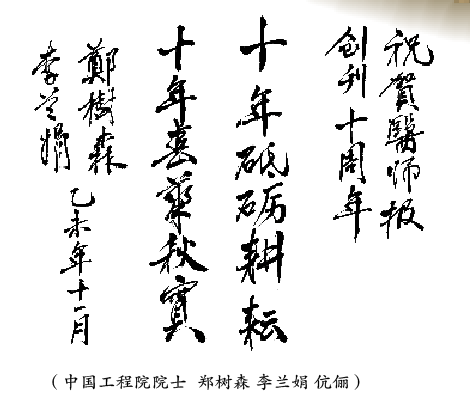 祝賀醫师报
创刊十周年
十年砥砺耕耘
十年喜秋實
鄭樹森
李兰娟
乙未年十一月
（中国工程院院士 郑树森 李兰娟 伉俪）